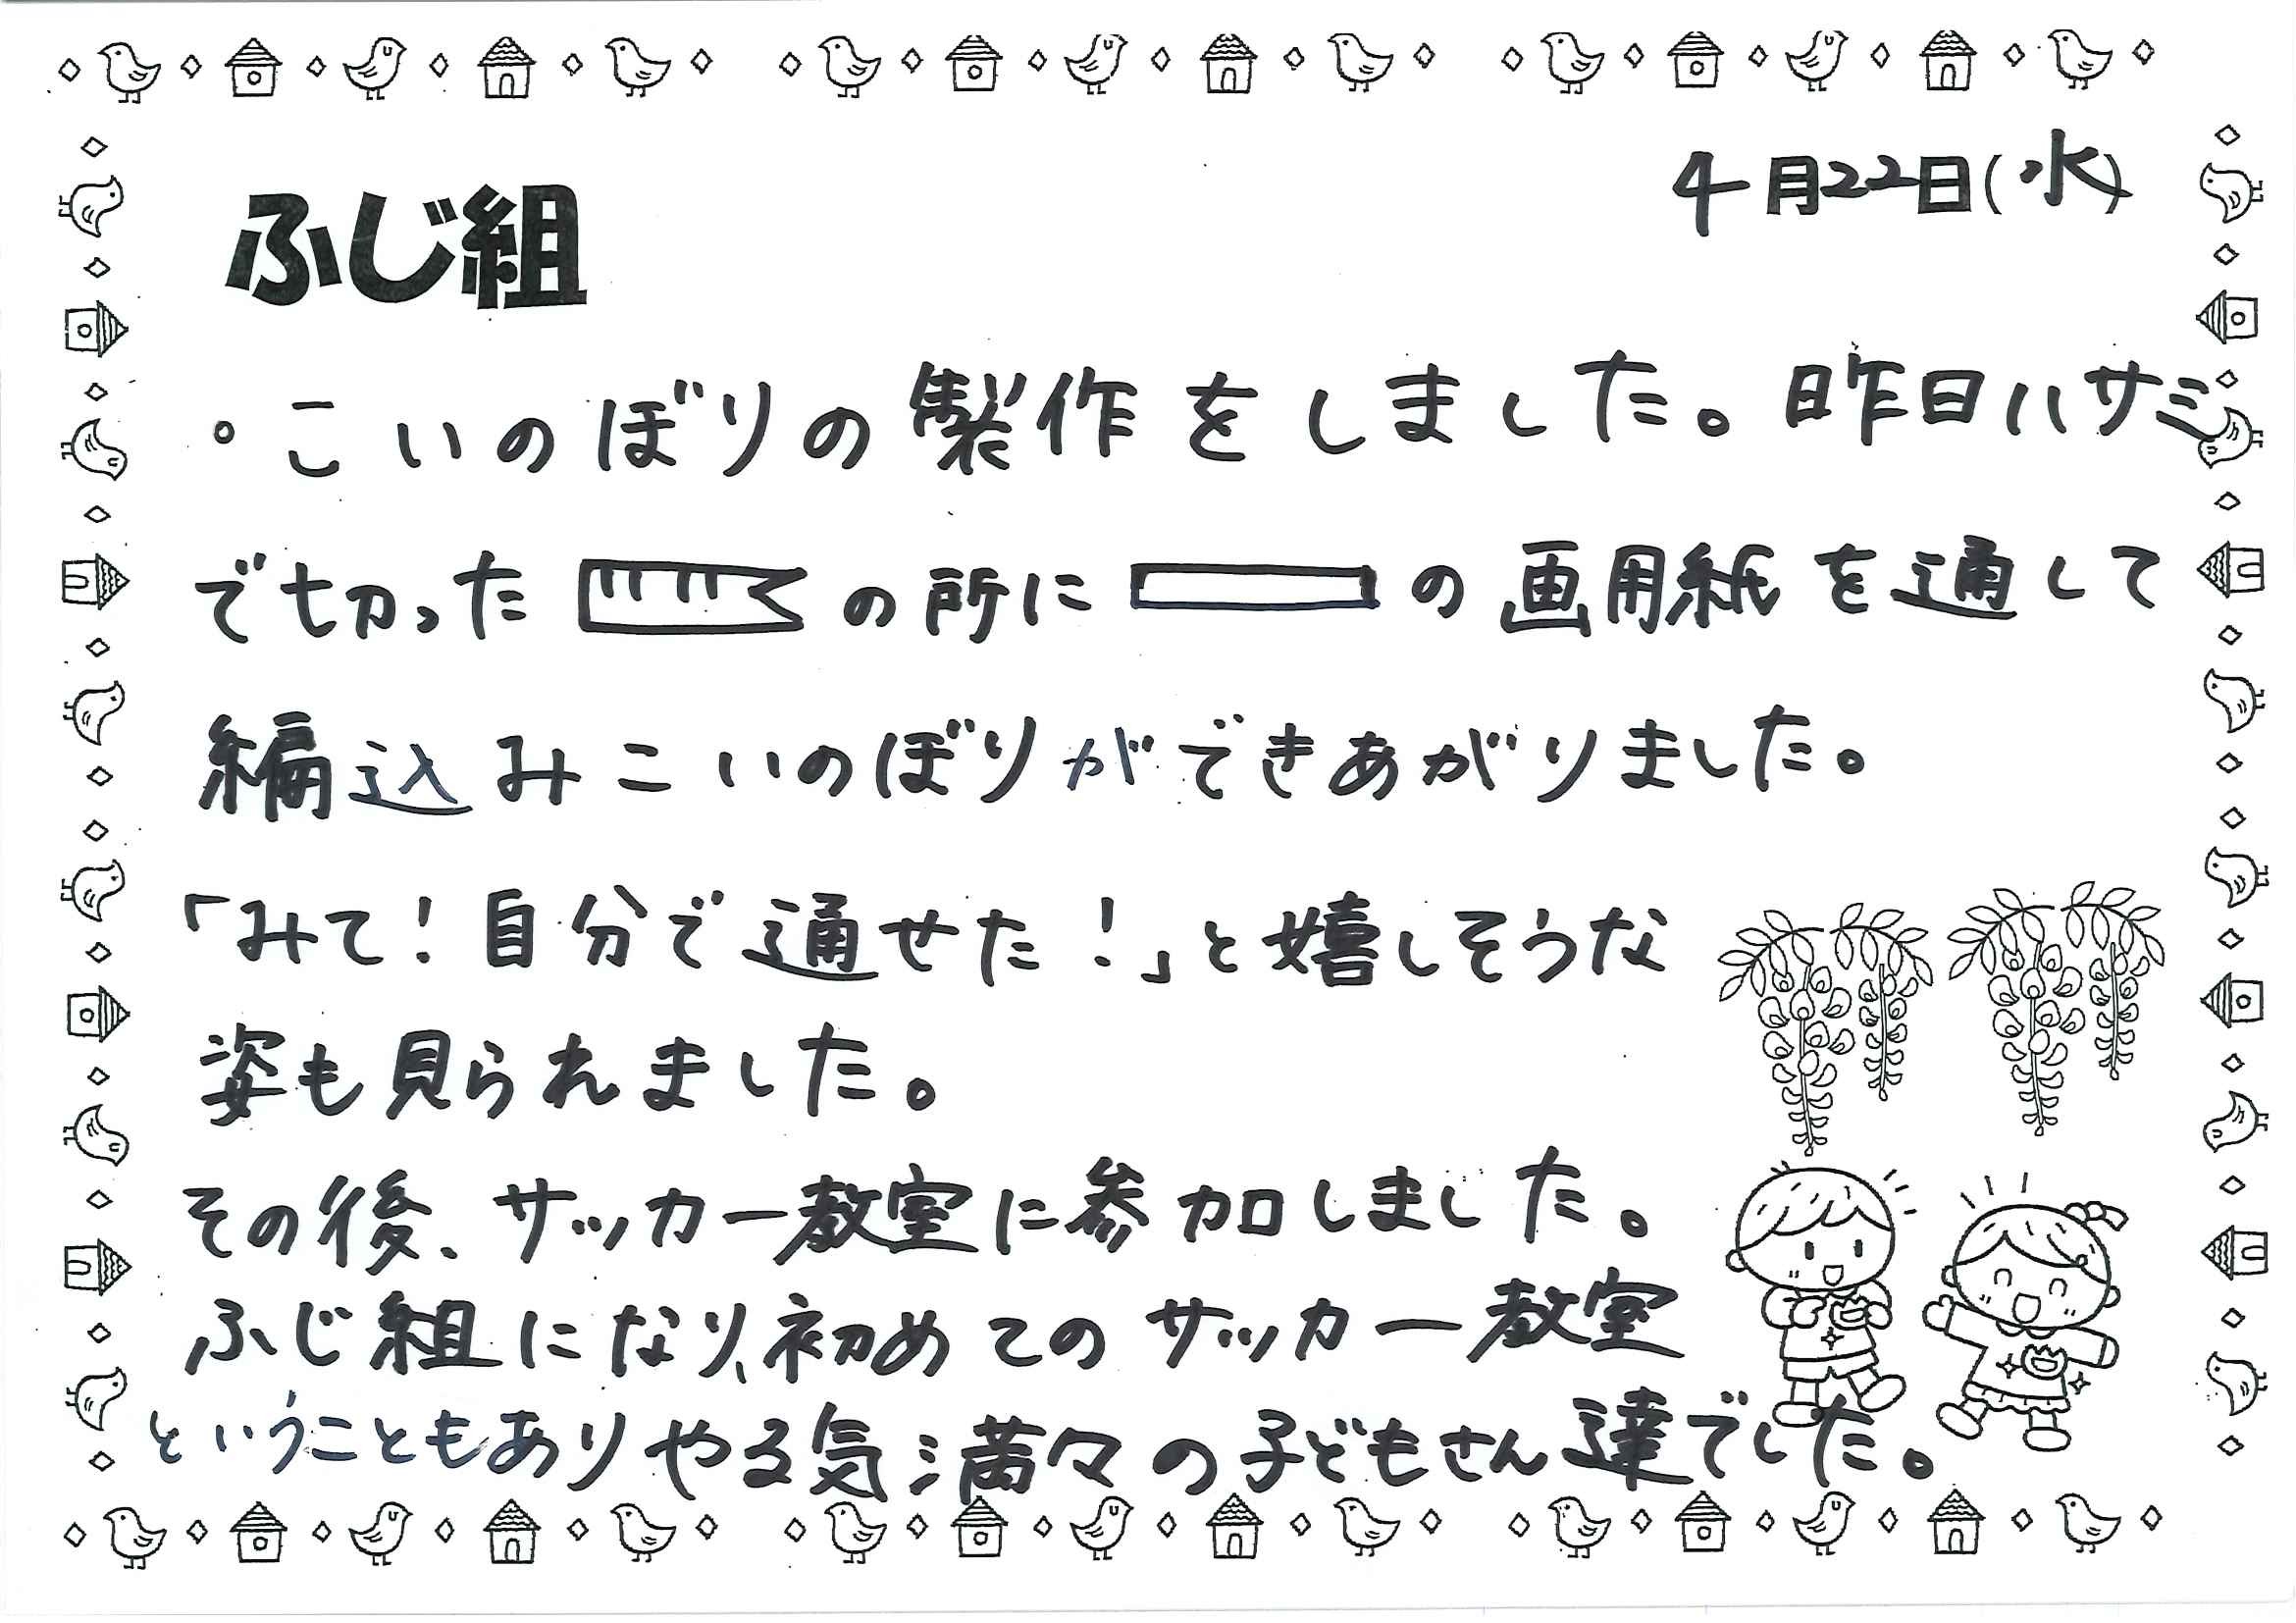 4月22日(水)
ふじ組
。こいのぼりの製作をしました。昨日ハサミ
で切った の所に の画用紙を通して
編込みこいのぼりができあがりました。
「みて!自分で通せた!」と嬉しそうな
姿も見られました。
その後、サッカー教室に参加しました。
ふじ組になり、初めてのサッカー教室
ということもありやる気満々の子どもさん達でした。